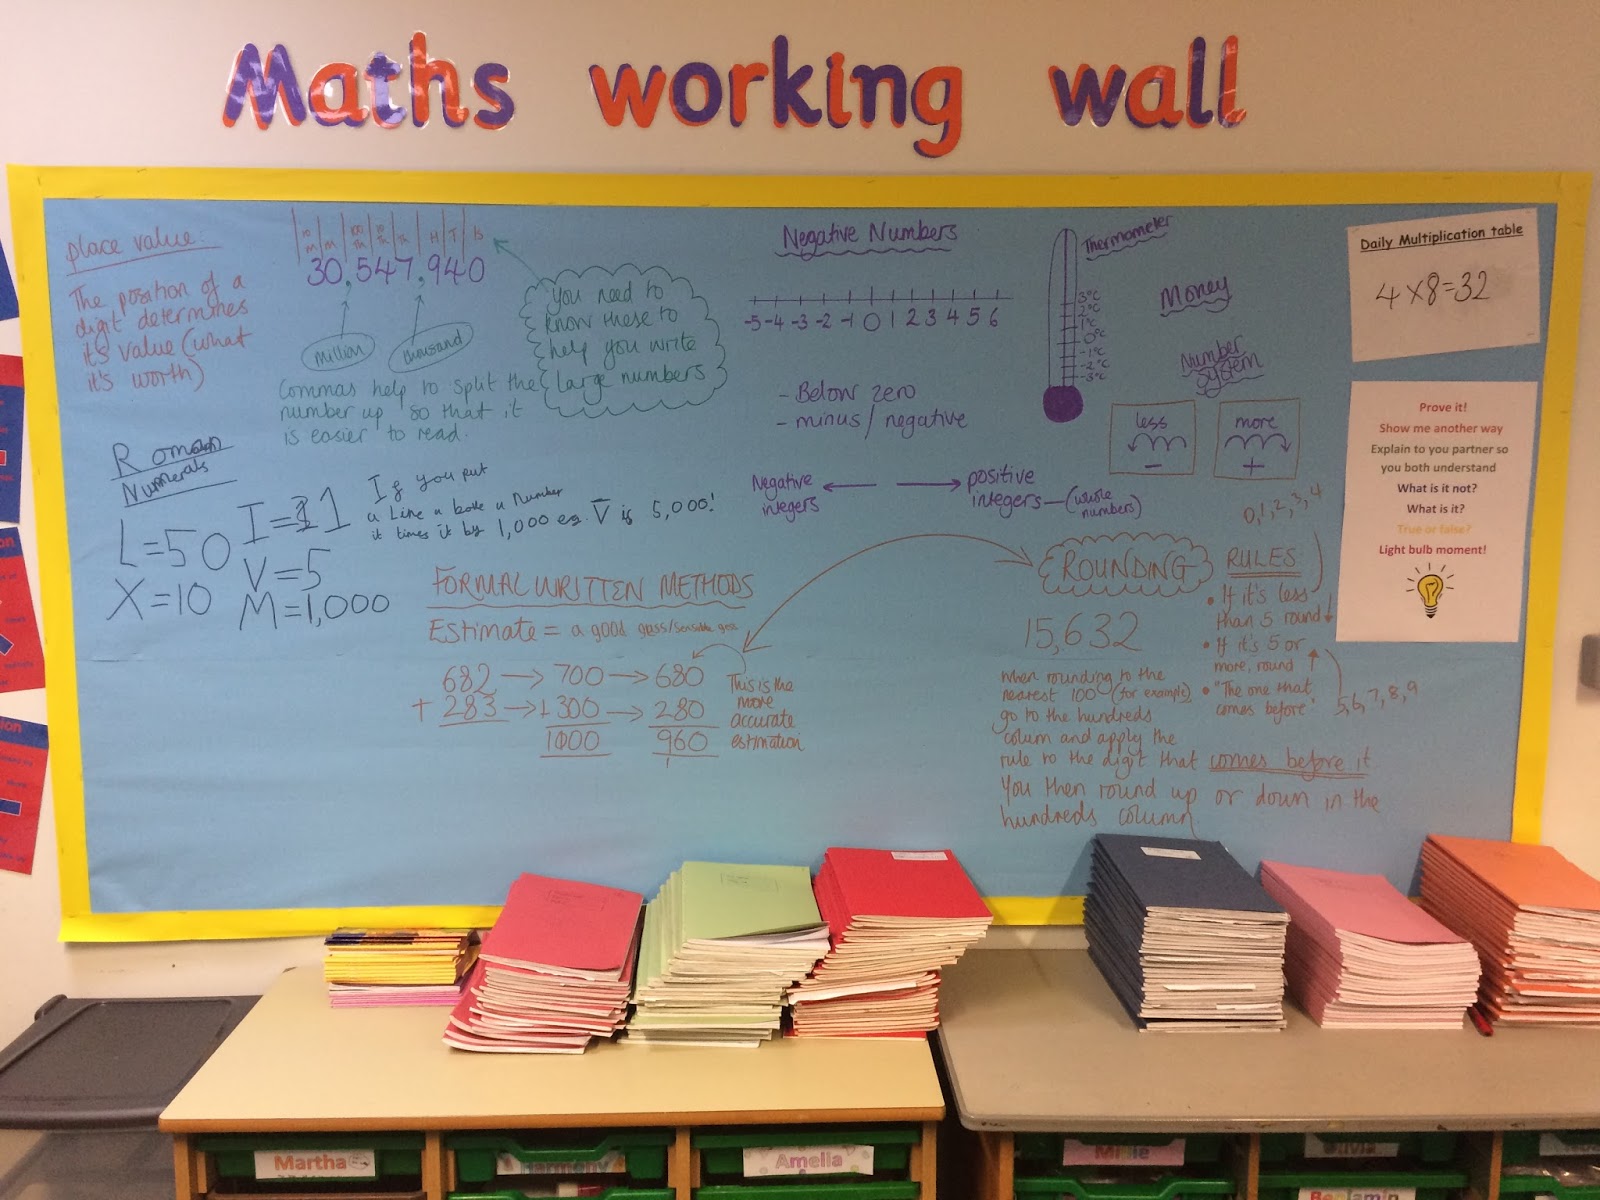 Maths working wall
place value:
The position of a
digit determines
it's value (what
it's worth)
10 M
M
100 Th
10 Th
Th
H
T
1s
30,547,940
million
thousand
You need to
know these to
help you write
large numbers
Commas help to split the
number up so that it
is easier to read.
Negative Numbers
-5 -4 -3 -2 -1 0 1 2 3 4 5 6
- Below zero
- minus/negative
Negative
integers
positive
integers
(whole
numbers)
Thermometer
3°C
2°C
1°C
0°C
-1°C
-2°C
-3°C
Money
Number
system
less
-
more
+
Daily Multiplication table
4 x 8 = 32
Prove it!
Show me another way
Explain to you partner so
you both understand
What is it not?
What is it?
True or false?
Light bulb moment!
Roman
Numerals
L=50
X=10
I=1
V=5
M=1,000
If you put
a Line a bove a Number
it times it by 1,000 eg. V̅ is 5,000!
FORMAL WRITTEN METHODS
Estimate = a good gess/sensible gess
682 → 700 → 680
+ 283 → + 300 → 280
1000 960
1
This is the
more
accurate
estimation
ROUNDING
15,632
when rounding to the
nearest 100 (for example)
go to the hundreds
colum and apply the
rule to the digit that comes before it
You then round up or down in the
hundreds column
RULES:
0,1,2,3,4
• If it's less
than 5 round ↓
• If it's 5 or
more, round ↑
• "The one that
comes before"
5,6,7,8,9
Martha
Harmony
Amelia
Millie
Olivia
Benjamin